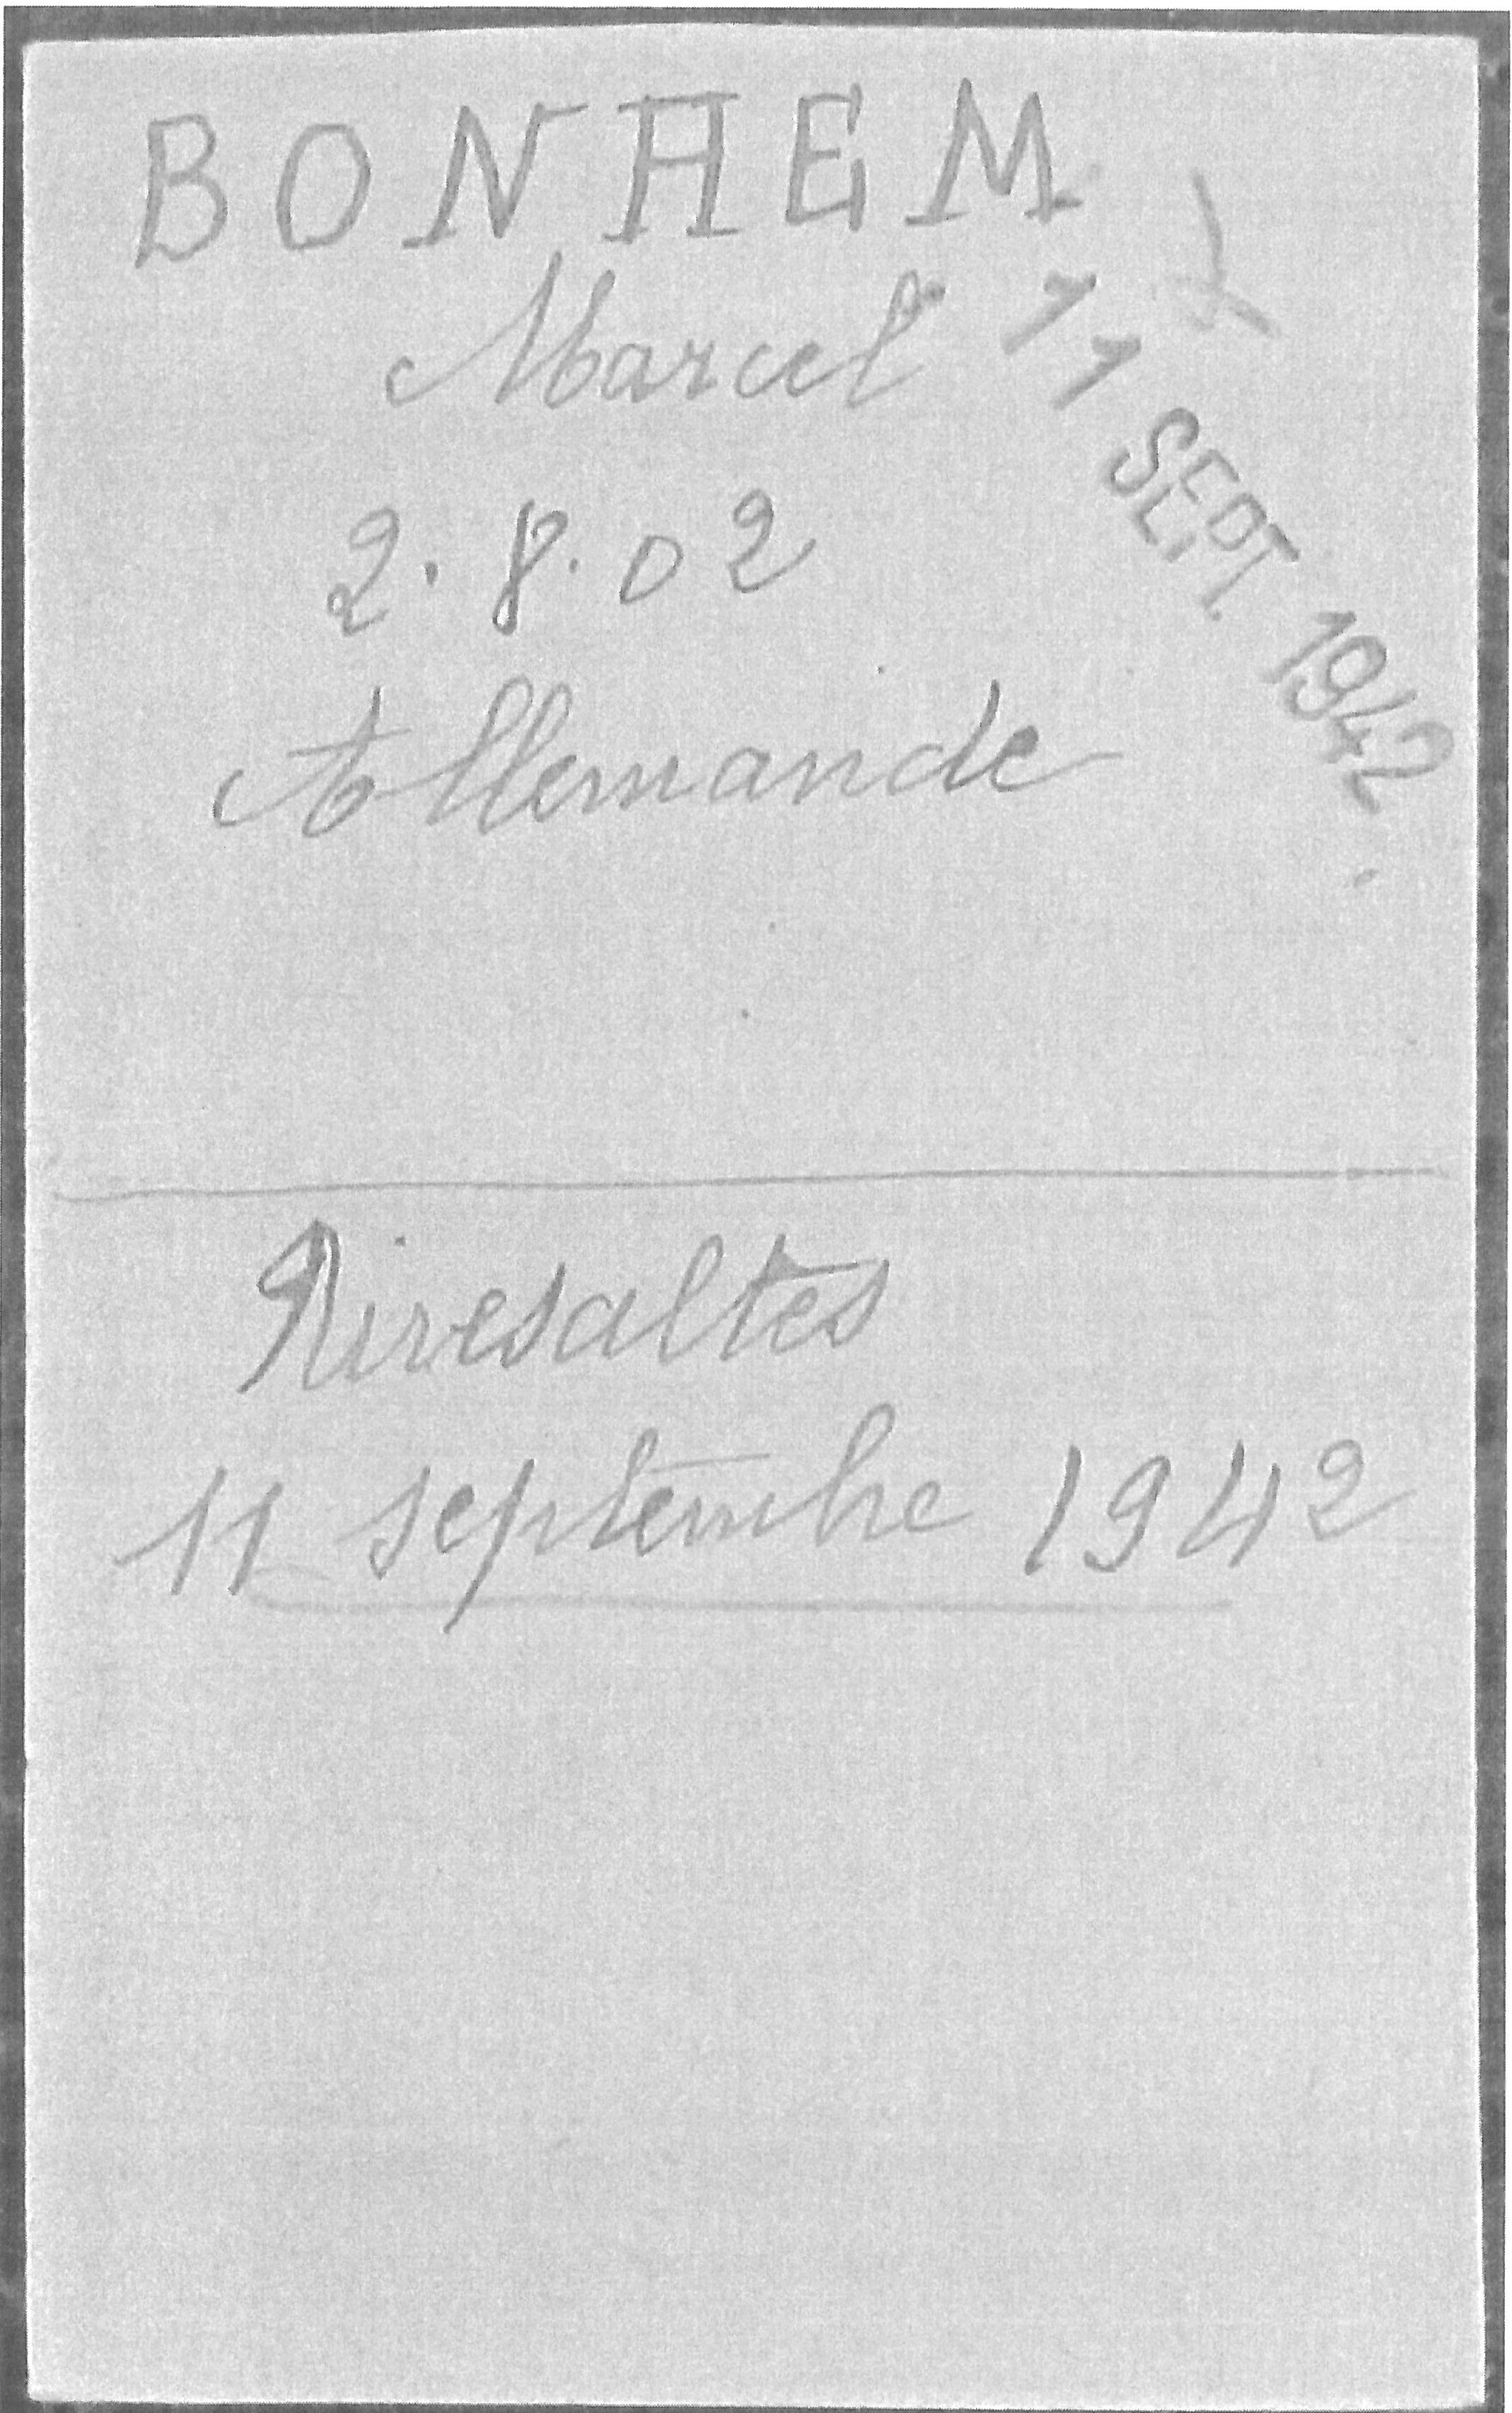 BONHEM
Marcel
11 SEPT. 1942
2.8.02
Allemande
Rivesaltes
11 septembre 1942